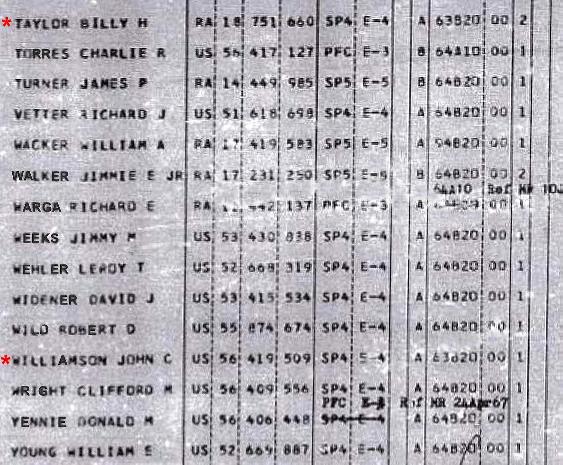 *TAYLOR BILLY H RA 18 751 660 SP4 E-4 A 63B20 00 2
TORRES CHARLIE R US 56 417 127 PFC E-3 B 64A10 00 1
TURNER JAMES P RA 14 449 985 SP5 E-5 B 64B20 00 1
VETTER RICHARD J US 51 618 698 SP4 E-4 A 64B20 00 1
WACKER WILLIAM A RA 17 419 583 SP5 E-5 A 94B20 00 1
WALKER JIMMIE E JR RA 17 231 250 SP5 E-5 B 64B20 00 2
64A10 Ref MR
WARGA RICHARD E RA 137 PFC E-3 A 00 1
WEEKS JIMMY M US 53 430 838 SP4 E-4 A 64B20 00 1
WEHLER LEROY T US 52 668 319 SP4 E-4 A 64B20 00 1
WIDENER DAVID J US 53 415 534 SP4 E-4 A 64B20 00 1
WILD ROBERT D US 55 874 674 SP4 E-4 A 64B20 00 1
*WILLIAMSON JOHN C US 56 419 509 SP4 A 63B20 00 1
WRIGHT CLIFFORD M US 56 409 556 SP4 E-4 A 64B20 00 1
PFC E-3 Ref MR 24Apr67
YENNIE DONALD M US 56 406 448 SP4 E-4 A 64B20 00 1
YOUNG WILLIAM E US 52 669 887 SP4 E-4 A 64B20 00 1